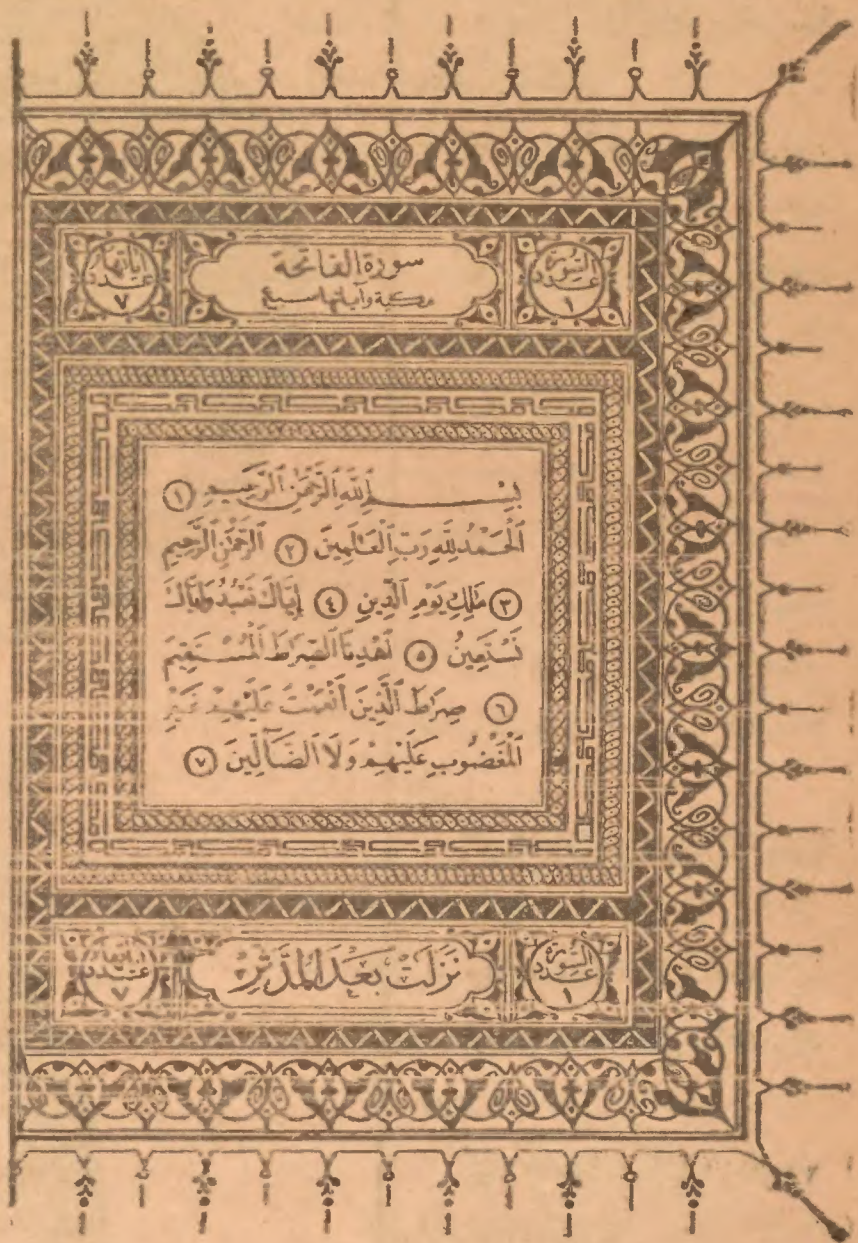 السورة
عدد
١
سورة الفاتحة
مكية وآياتها سبع
آياتها
عدد
٧
بِسْمِ ٱللَّهِ ٱلرَّحْمَٰنِ ٱلرَّحِيمِ ١
ٱلْحَمْدُ لِلَّهِ رَبِّ ٱلْعَٰلَمِينَ ٢ ٱلرَّحْمَٰنِ ٱلرَّحِيمِ
٣ مَٰلِكِ يَوْمِ ٱلدِّينِ ٤ إِيَّاكَ نَعْبُدُ وَإِيَّاكَ
نَسْتَعِينُ ٥ ٱهْدِنَا ٱلصِّرَٰطَ ٱلْمُسْتَقِيمَ
٦ صِرَٰطَ ٱلَّذِينَ أَنْعَمْتَ عَلَيْهِمْ غَيْرِ
ٱلْمَغْضُوبِ عَلَيْهِمْ وَلَا ٱلضَّآلِّينَ ٧
السورة
عدد
١
نَزَلَتْ بَعْدَ المدَّثِّرِ
آياتها
عدد
٧